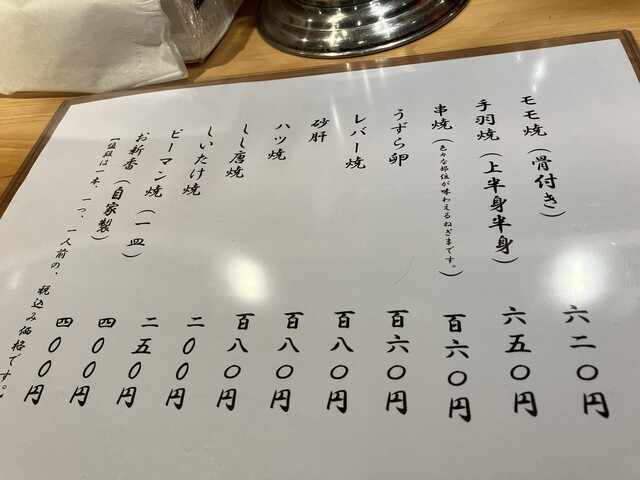 モモ焼（骨付き） 六二〇円
手羽焼（上半身半身） 六五〇円
串焼（色々な部位が味わえるねぎまです。） 百六〇円
うずら卵 百六〇円
レバー焼 百八〇円
砂肝 百八〇円
ハツ焼 百八〇円
しし唐焼 二〇〇円
しいたけ焼 二五〇円
ピーマン焼（一皿） 四〇〇円
お新香（自家製） 四〇〇円
（値段は一本、一つ、一人前の、税込み価格です。）